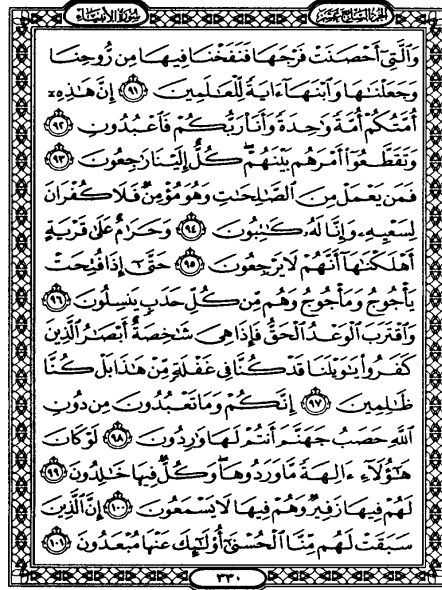 الجزء السابع عشر
سورة الأنبياء
وَٱلَّتِيٓ أَحْصَنَتْ فَرْجَهَا فَنَفَخْنَا فِيهَا مِن رُّوحِنَا
وَجَعَلْنَٰهَا وَٱبْنَهَآ ءَايَةً لِّلْعَٰلَمِينَ ٩١ إِنَّ هَٰذِهِۦٓ
أُمَّتُكُمْ أُمَّةً وَٰحِدَةً وَأَنَا۠ رَبُّكُمْ فَٱعْبُدُونِ ٩٢
وَتَقَطَّعُوٓا۟ أَمْرَهُم بَيْنَهُمْ ۖ كُلٌّ إِلَيْنَا رَٰجِعُونَ ٩٣
فَمَن يَعْمَلْ مِنَ ٱلصَّٰلِحَٰتِ وَهُوَ مُؤْمِنٌ فَلَا كُفْرَانَ
لِسَعْيِهِۦ وَإِنَّا لَهُۥ كَٰتِبُونَ ٩٤ وَحَرَٰمٌ عَلَىٰ قَرْيَةٍ
أَهْلَكْنَٰهَآ أَنَّهُمْ لَا يَرْجِعُونَ ٩٥ حَتَّىٰٓ إِذَا فُتِحَتْ
يَأْجُوجُ وَمَأْجُوجُ وَهُم مِّن كُلِّ حَدَبٍ يَنسِلُونَ ٩٦
وَٱقْتَرَبَ ٱلْوَعْدُ ٱلْحَقُّ فَإِذَا هِىَ شَٰخِصَةٌ أَبْصَٰرُ ٱلَّذِينَ
كَفَرُوا۟ يَٰوَيْلَنَا قَدْ كُنَّا فِى غَفْلَةٍ مِّنْ هَٰذَا بَلْ كُنَّا
ظَٰلِمِينَ ٩٧ إِنَّكُمْ وَمَا تَعْبُدُونَ مِن دُونِ
ٱللَّهِ حَصَبُ جَهَنَّمَ أَنتُمْ لَهَا وَٰرِدُونَ ٩٨ لَوْ كَانَ
هَٰٓؤُلَآءِ ءَالِهَةً مَّا وَرَدُوهَا ۖ وَكُلٌّ فِيهَا خَٰلِدُونَ ٩٩
لَهُمْ فِيهَا زَفِيرٌ وَهُمْ فِيهَا لَا يَسْمَعُونَ ١٠٠ إِنَّ ٱلَّذِينَ
سَبَقَتْ لَهُم مِّنَّا ٱلْحُسْنَىٰٓ أُو۟لَٰٓئِكَ عَنْهَا مُبْعَدُونَ ١٠١
٣٣٠